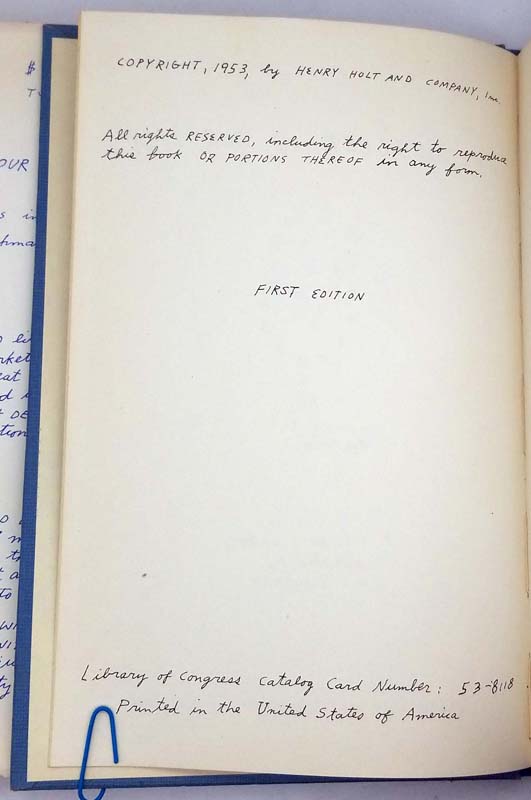 COPYRIGHT, 1953, by HENRY HOLT AND COMPANY, Inc.
All rights RESERVED, including the right to reproduce
this book OR PORTIONS THEREOF in any form.
FIRST EDITION
Library of Congress Catalog Card Number: 53-8118
Printed in the United States of America